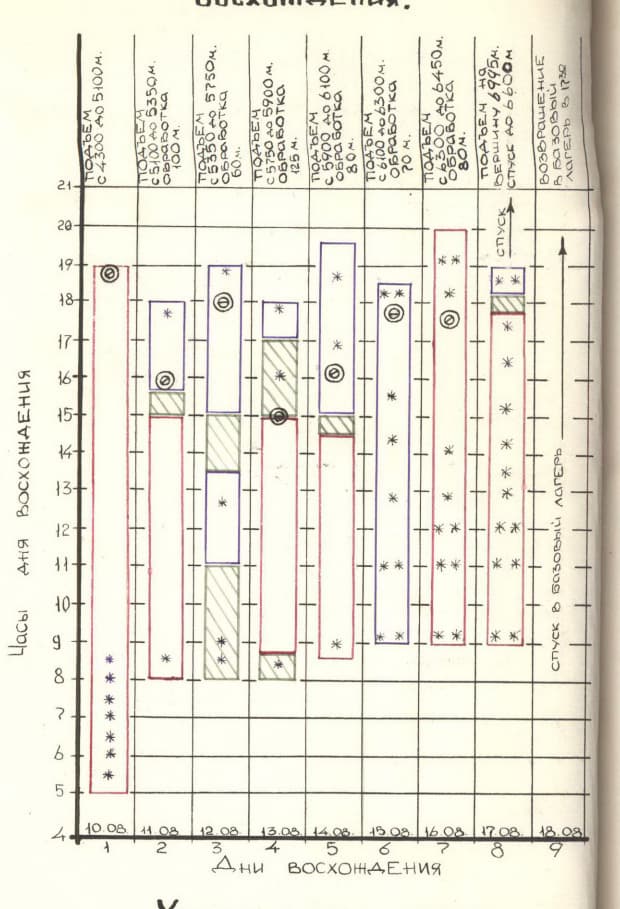 ВОСХОЖДЕНИЯ.
ПОДЪЕМ
С 4300 ДО 5100М.
ПОДЪЕМ
С 5100 ДО 5350М.
ОБРАБОТКА
100 М.
ПОДЪЕМ
С 5350 ДО 5750М.
ОБРАБОТКА
60М.
ПОДЪЕМ
С 5750 ДО 5900М.
ОБРАБОТКА
125 М.
ПОДЪЕМ
С 5900 ДО 6100М.
ОБРАБОТКА
80М.
ПОДЪЕМ
С 6100 ДО 6300М.
ОБРАБОТКА
70 М.
ПОДЪЕМ
С 6300 ДО 6450М.
ОБРАБОТКА
80М.
ПОДЪЕМ НА
ВЕРШИНУ 6995М.
СПУСК ДО 6600М
ВОЗВРАЩЕНИЕ
В БАЗОВЫЙ
ЛАГЕРЬ В 17 30
ЧАСЫ ДНЯ ВОСХОЖДЕНИЯ
21
20
19
18
17
16
15
14
13
12
11
10
9
8
7
6
5
4
СПУСК
СПУСК В БАЗОВЫЙ ЛАГЕРЬ
10.08. 11.08. 12.08. 13.08. 14.08. 15.08. 16.08. 17.08. 18.08
1 2 3 4 5 6 7 8 9
ДНИ ВОСХОЖДЕНИЯ